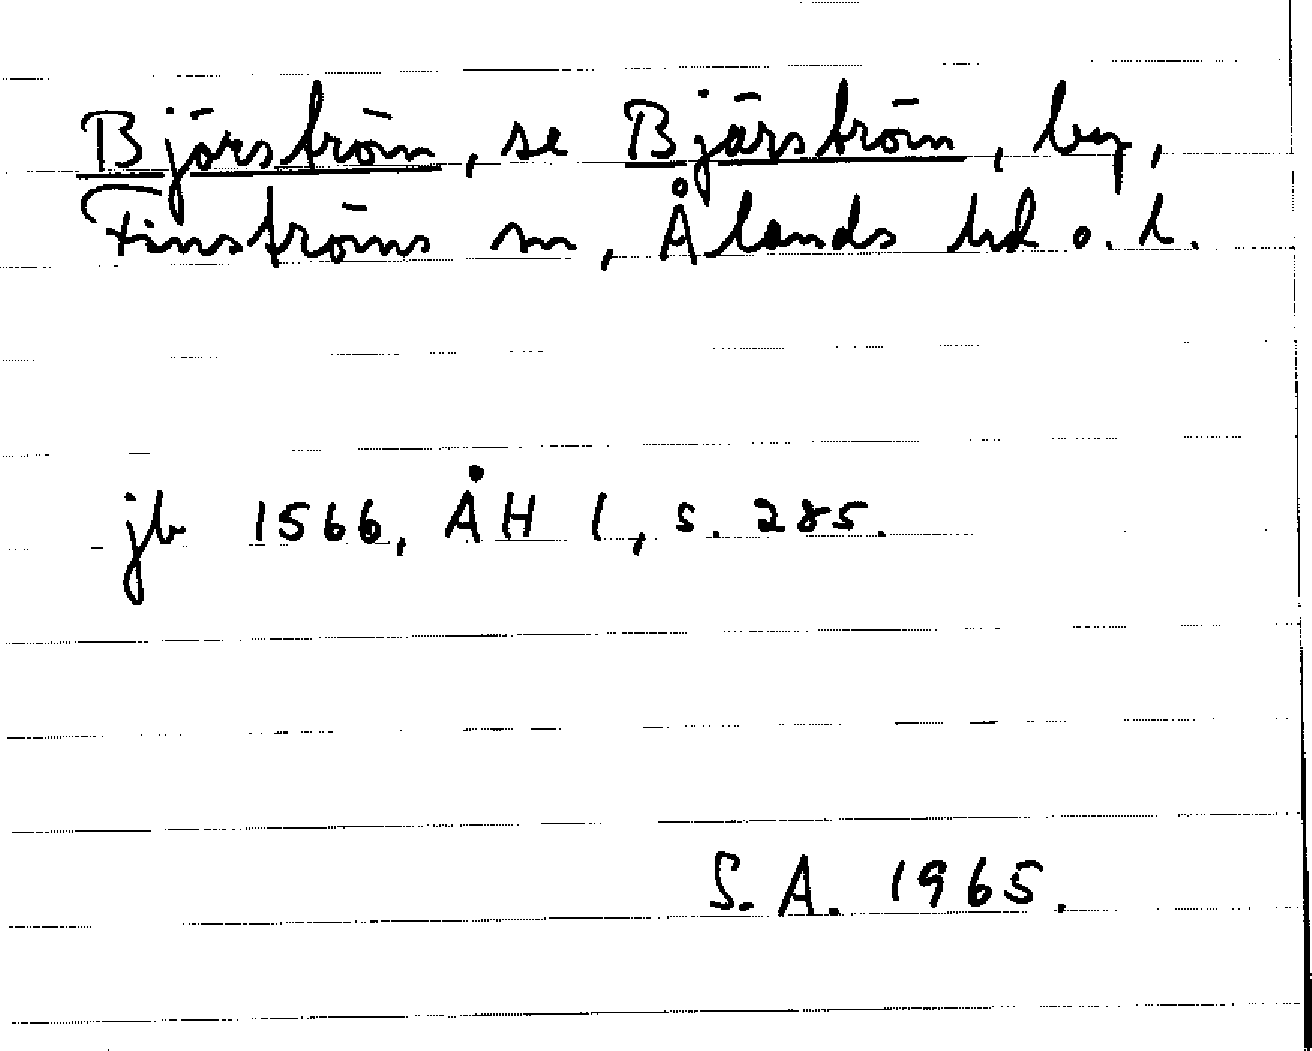 Björström, se Bjärström, by,
Finströms sn, Ålands hd o. l.
jb 1566, ÅH 1, s. 285.
S. A. 1965.